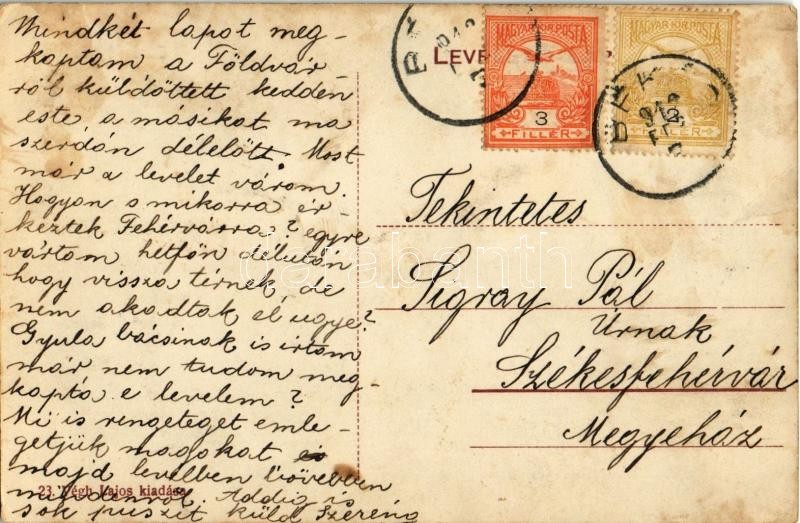 Mindkét lapot meg-
kaptam a Földvár-
ról küldöttett kedden
este a másikat ma
szerdán délelőtt. Most
már a levelet várom.
Hogyan s mikorra ér-
keztek Fehérvárra? egyre
vártam hétfőn délután
hogy vissza térnek de
nem akadtak el ugye?
Gyula bácsinak is írtam
már nem tudom meg-
kapta e levelem?
Mi is rengeteget emle-
getjük magokat és
majd levélben bővebben
mindenről. Addig is
sok puszit küld Szeréna
23. Végh Lajos kiadása
MAGYAR KIR. POSTA
3
FILLÉR
MAGYAR KIR. POSTA
FILLÉR
Tekintetes
Sigray Pál
Úrnak
Székesfehérvár
Megyeház
darabanth